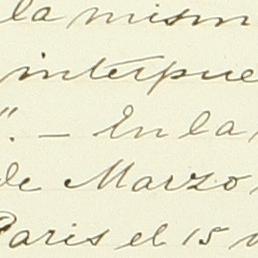 la mism
interpue
". — En la
de Marzo
Paris el 15